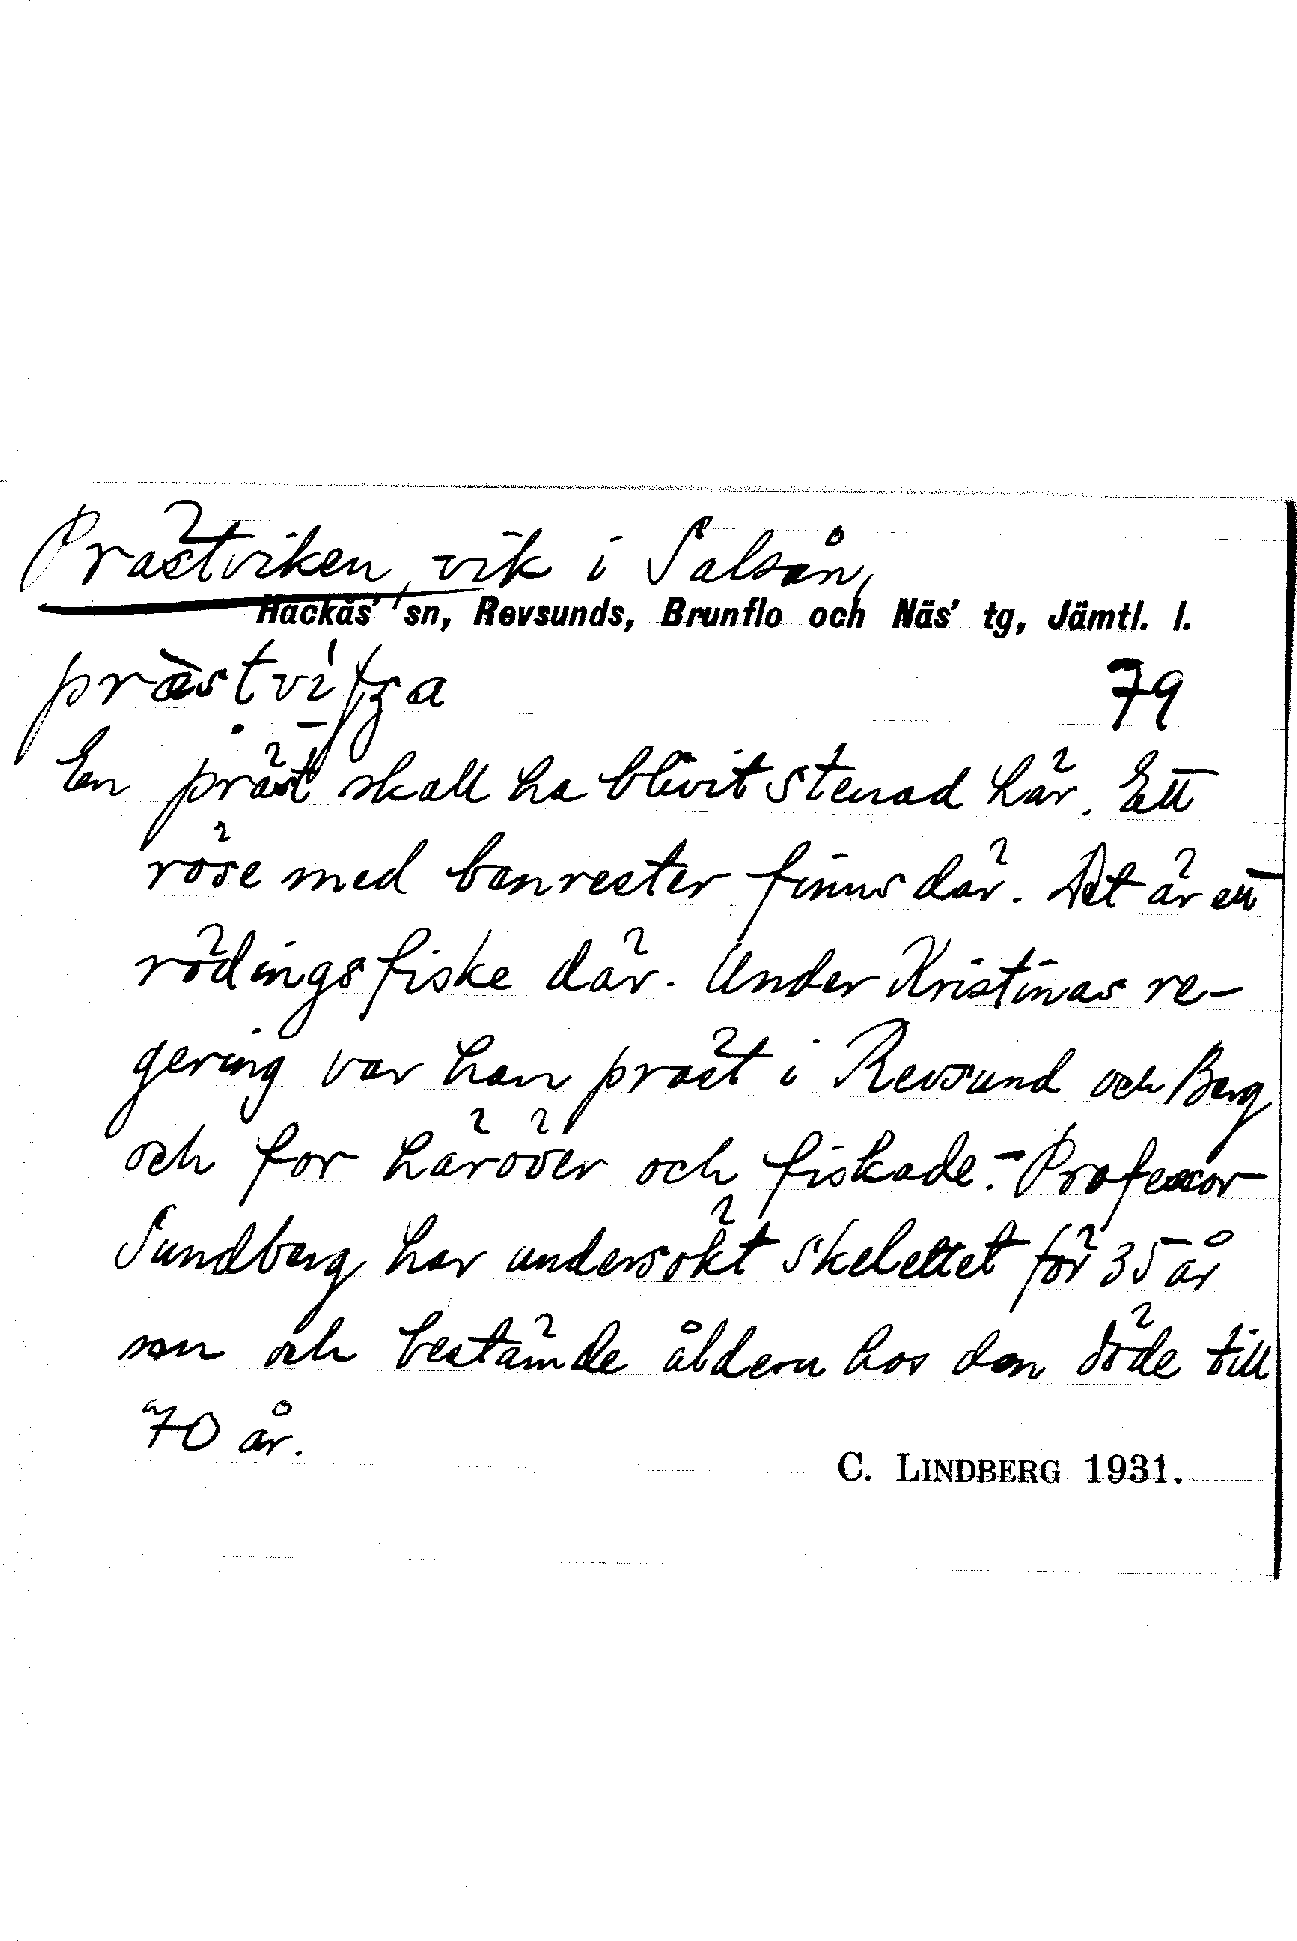 Prästviken, vik i Salsån,
Hackås' sn, Revsunds, Brunflo och Näs' tg, Jämtl. l.
79
En präst skall ha blivit stenad här. Ett
röse med benrester finns där. Det är ett
rödingsfiske där. Under Kristinas re-
gering var han präst i Revsund och Berg
och for häröver och fiskade.- Professor
Sundberg har undersökt skelettet för 35 år
sen och bestämde åldern hos den döde till
70 år.
C. LINDBERG 1931.